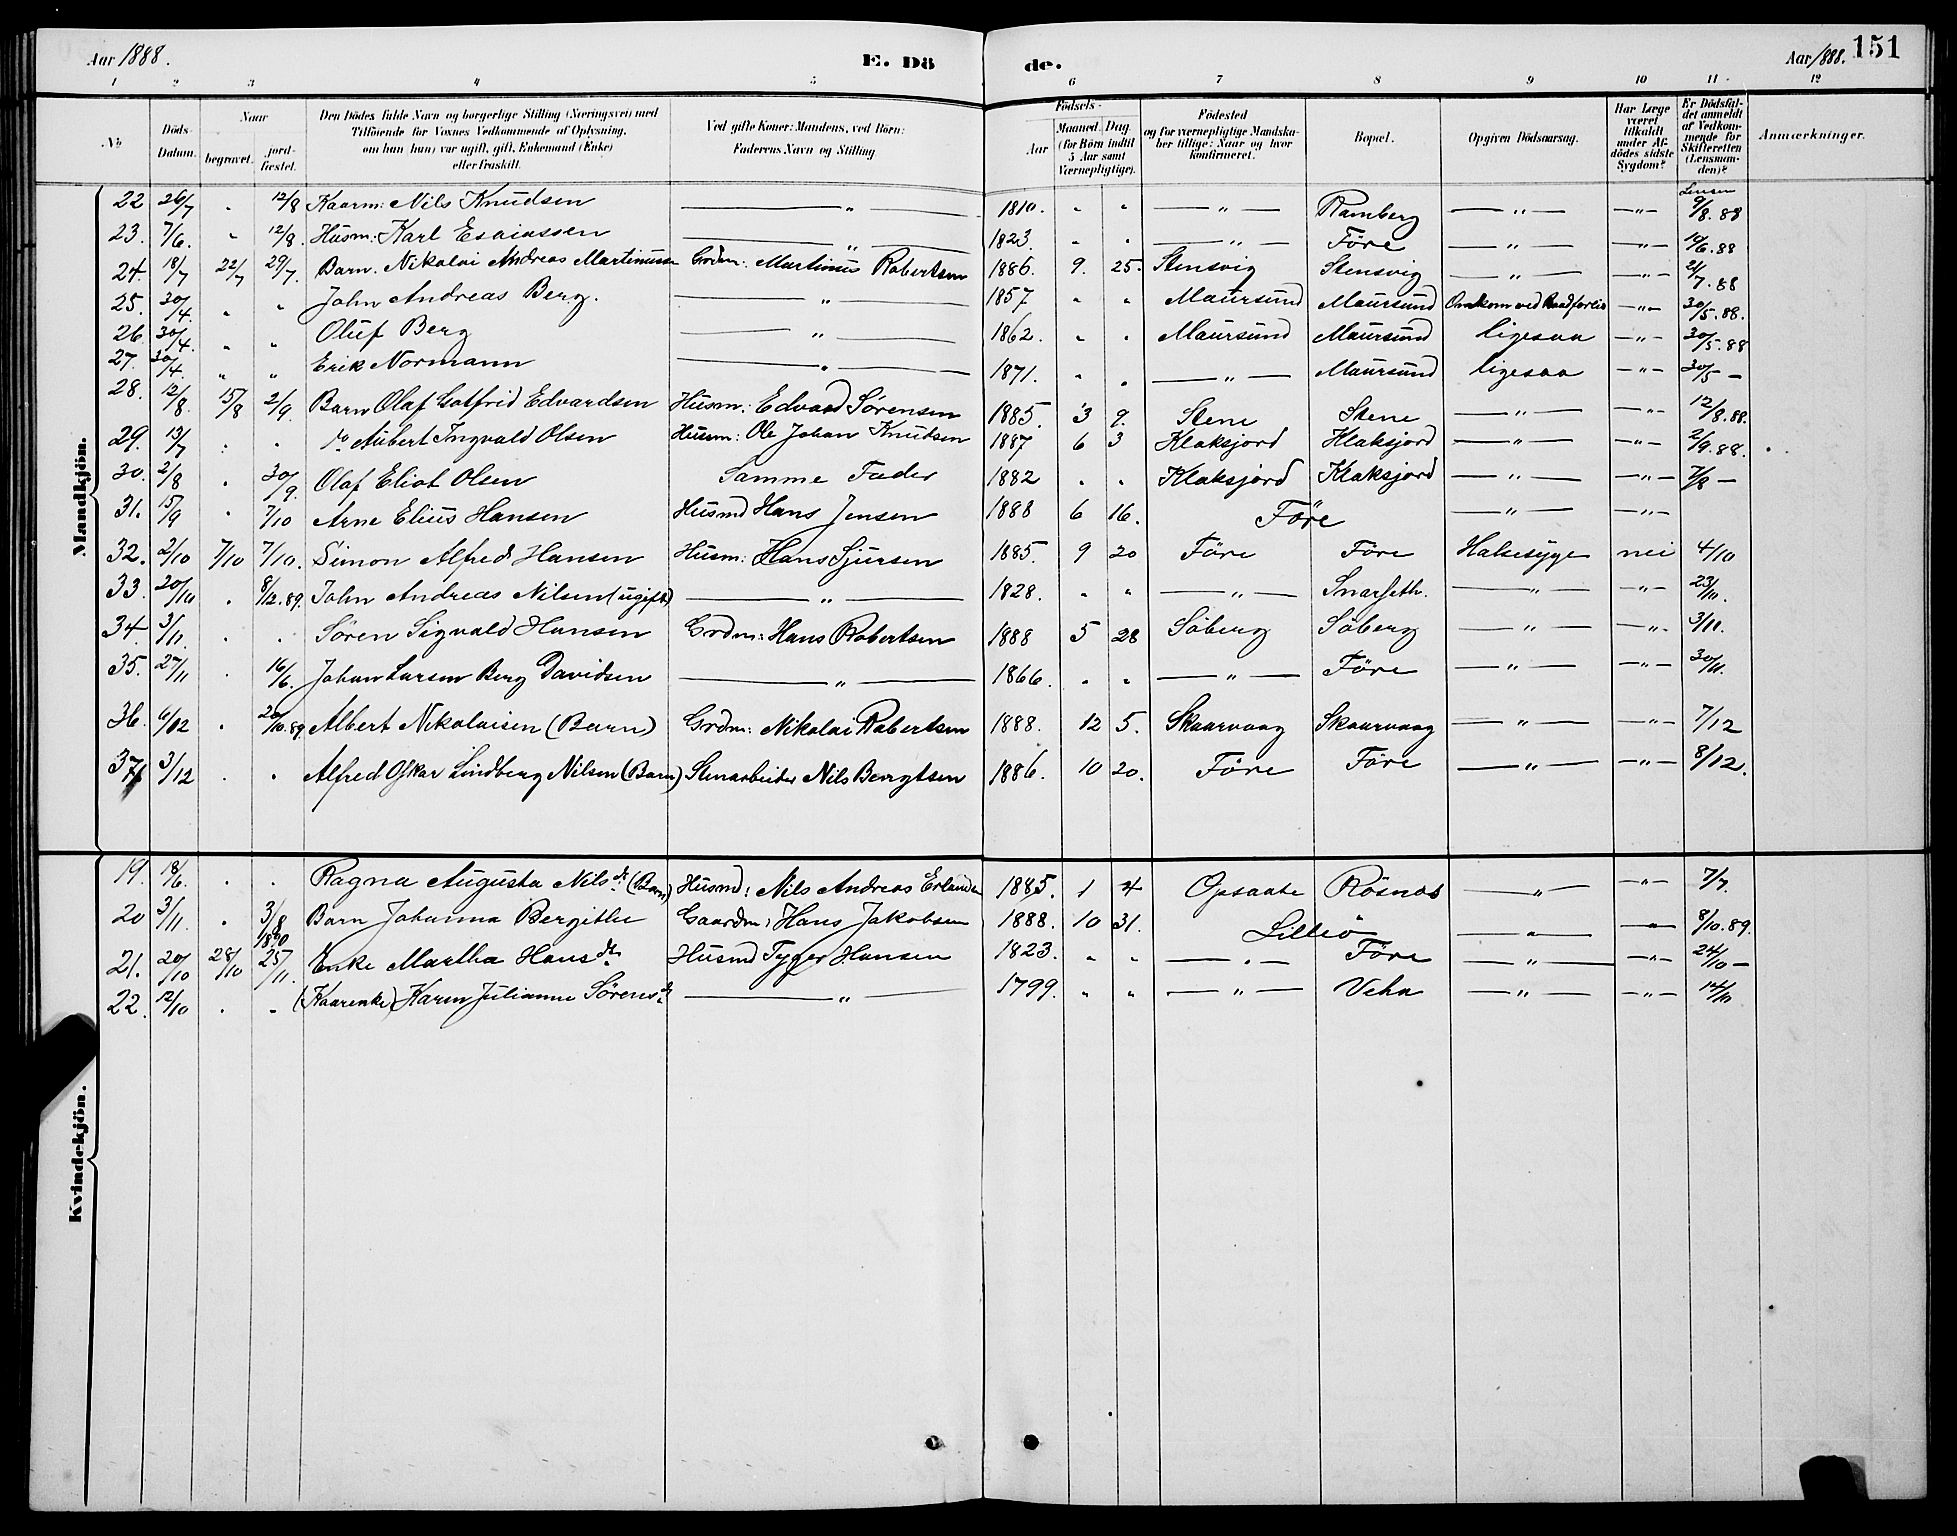 Aar 1888. E. Dö de. Aar 1888. 151
1 2 3 4 5 6 7 8 9 10 11 12
No. Döds-Datum. Naar begravet. jordfæstet. Den Dödes fulde Navn og borgerlige Stilling (Næringsvei) med Tilföiende for Voxnes Vedkommende af Oplysning, om han (hun) var ugift, gift, Enkemand (Enke) eller fraskilt. Ved gifte Koner: Mandens, ved Börn: Faderens Navn og Stilling Födsels- Aar Maaned. Dag. (for Börn indtil 5 Aar samt Værnepligtige). Födested og for værnepligtige Mandskaber tillige: Naar og hvor konfirmeret. Bopæl. Opgiven Dödsaarsag. Har Læge været tilkaldt under Afdödes sidste Sygdom? Er Dödsfaldet anmeldt af Vedkommende for Skifteretten (Lensmanden)? Anmærkninger.
Mandkjön.
22 26/7 " 12/8 Kaarm: Nils Knudsen — " — 1810. " " — " — Ramberg — " — — " — Lensm 9/8. 88
23. 7/6. " 12/8. Husm: Karl Esaiassen — " — 1823. " " — " — Före — " — — " — 10/6. 88
24. 18/7 22/7 29/7. Barn. Nikolai Andreas Martinussen Grdm: Martinus Robertsen 1886. 9. 25. Stensvig Stensvig — " — — " — 21/7. 88
25. 30/4. " " John Andreas Berg. — " — 1857 " " Maursund Maursund Omkom ved Baadforlis — " — 30/5. 88.
26 30/4. " " Oluf Berg — " — 1862. " " Maursund Maursund ligesaa — " — 30/5. 88
27. 30/4. " " Erik Normann — " — 1871. " " — " — Maursund ligesaa — " — 30/5 —
28. 12/8. 15/8 2/9. Barn Olaf Gotfrid Edvardsen Husm: Edvard Sörensen 1885. 3 9. Stene Stene — " — — " — 12/8. 88.
29. 13/7 . . do Aubert Ingvald Olsen Husm: Ole Johan Knudsen 1887 6 3 Klaksjord Klaksjord — " — — " — 2/9. 88.
30. 2/8 . 30/9. Olaf Eliot Olsen Samme Fader 1882 " " Klaksjord Klaksjord — " — — " — 7/8 —
31. 15/9 " 7/10 Arne Elius Hansen Husmd Hans Jensen 1888 6 16. Före — " — — " —
32. 2/10 7/10 7/10. Simon Alfred Hansen Husm: Hans Sjursen 1885. 9 20 Före Före Halsesyge nei 4/10
33. 20/10 . 8/12. 89. John Andreas Nilsen (ugift) — " — 1828. " " — " — Snarseth. — " — — " — 23/11.
34 3/11. . . Sören Sigvald Hansen Grdm: Hans Robertsen 1888 5 28 Söberg Söberg — " — — " — 3/11.
35. 27/11 . 16/6. Johan Larsen Berg Davidsen — " — 1866. " " — " — Före — " — — " — 30/11.
36. 6/12 . 20/10. 89. Albert Nikolaisen (Barn) Grdm: Nikolai Robertsen 1888. 12 5. Skaarvaag Skaarvaag — " — — " — 7/12
37 3/12 . . Alfred Oskar Lindberg Nilsen (Barn) Stenarbeider Nils Bengtsen 1886. 10 20. Före Före — " — — " — 8/12.
Kvindekjön.
19. 18/6. . . Ragna Augusta Nilsdt. (Barn) Husmd: Nils Andreas Erlandsen 1885. 1 4 Opsaate Rösnes — " — — " — 7/7.
20 3/11. . 3/8 1890 Barn Johanna Bergithe Gaardm: Hans Jakobsen 1888. 10 31. Lilleö — " — — " — 8/10. 89.
21. 20/10 28/10 25/11. Enke Martha Hansdtr Husmd Tyger Hansen 1823. " " — " — Före — " — — " — 24/10 —
22. 12/10 . " (Kaarenke) Karen Julianne Sörensd. — " — 1799. " " — " — Veha — " — — " — 14/11